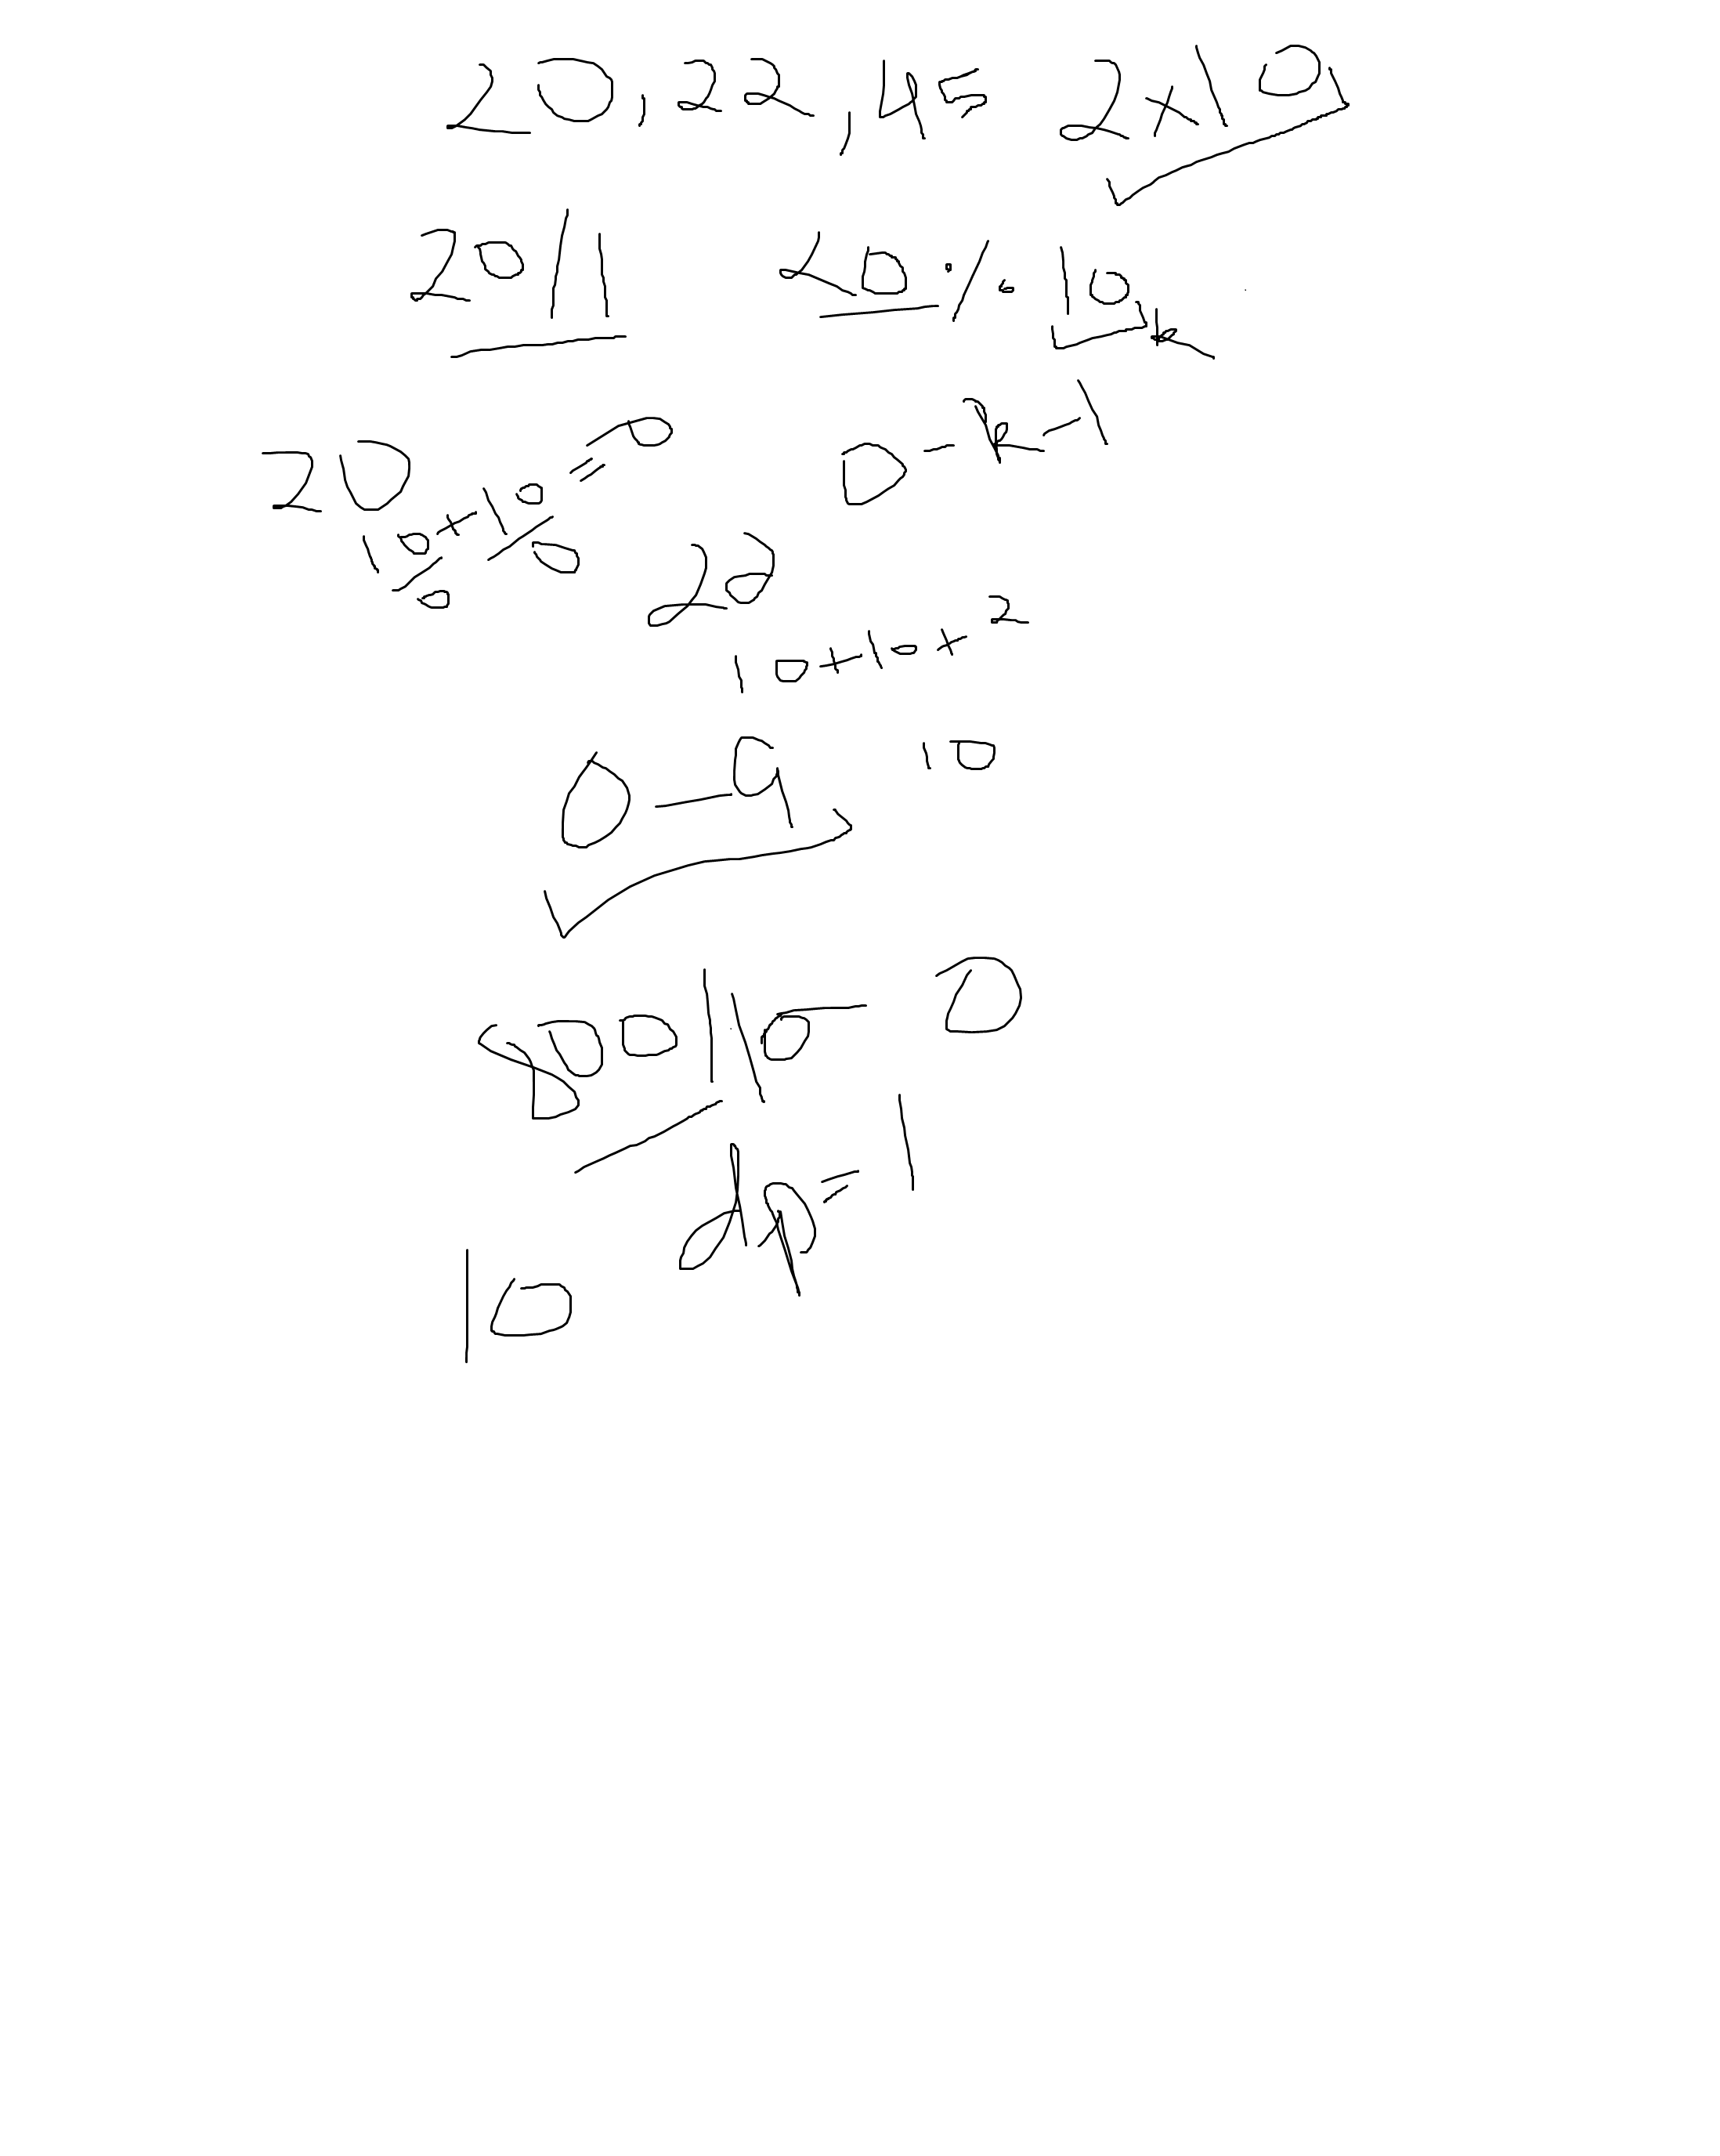 20,22,45 2x10
2011 20%10k
20 0-k-1
10+10=0
0 0
22
10+10+2
0-9 10
800 110 0
dp=1
10